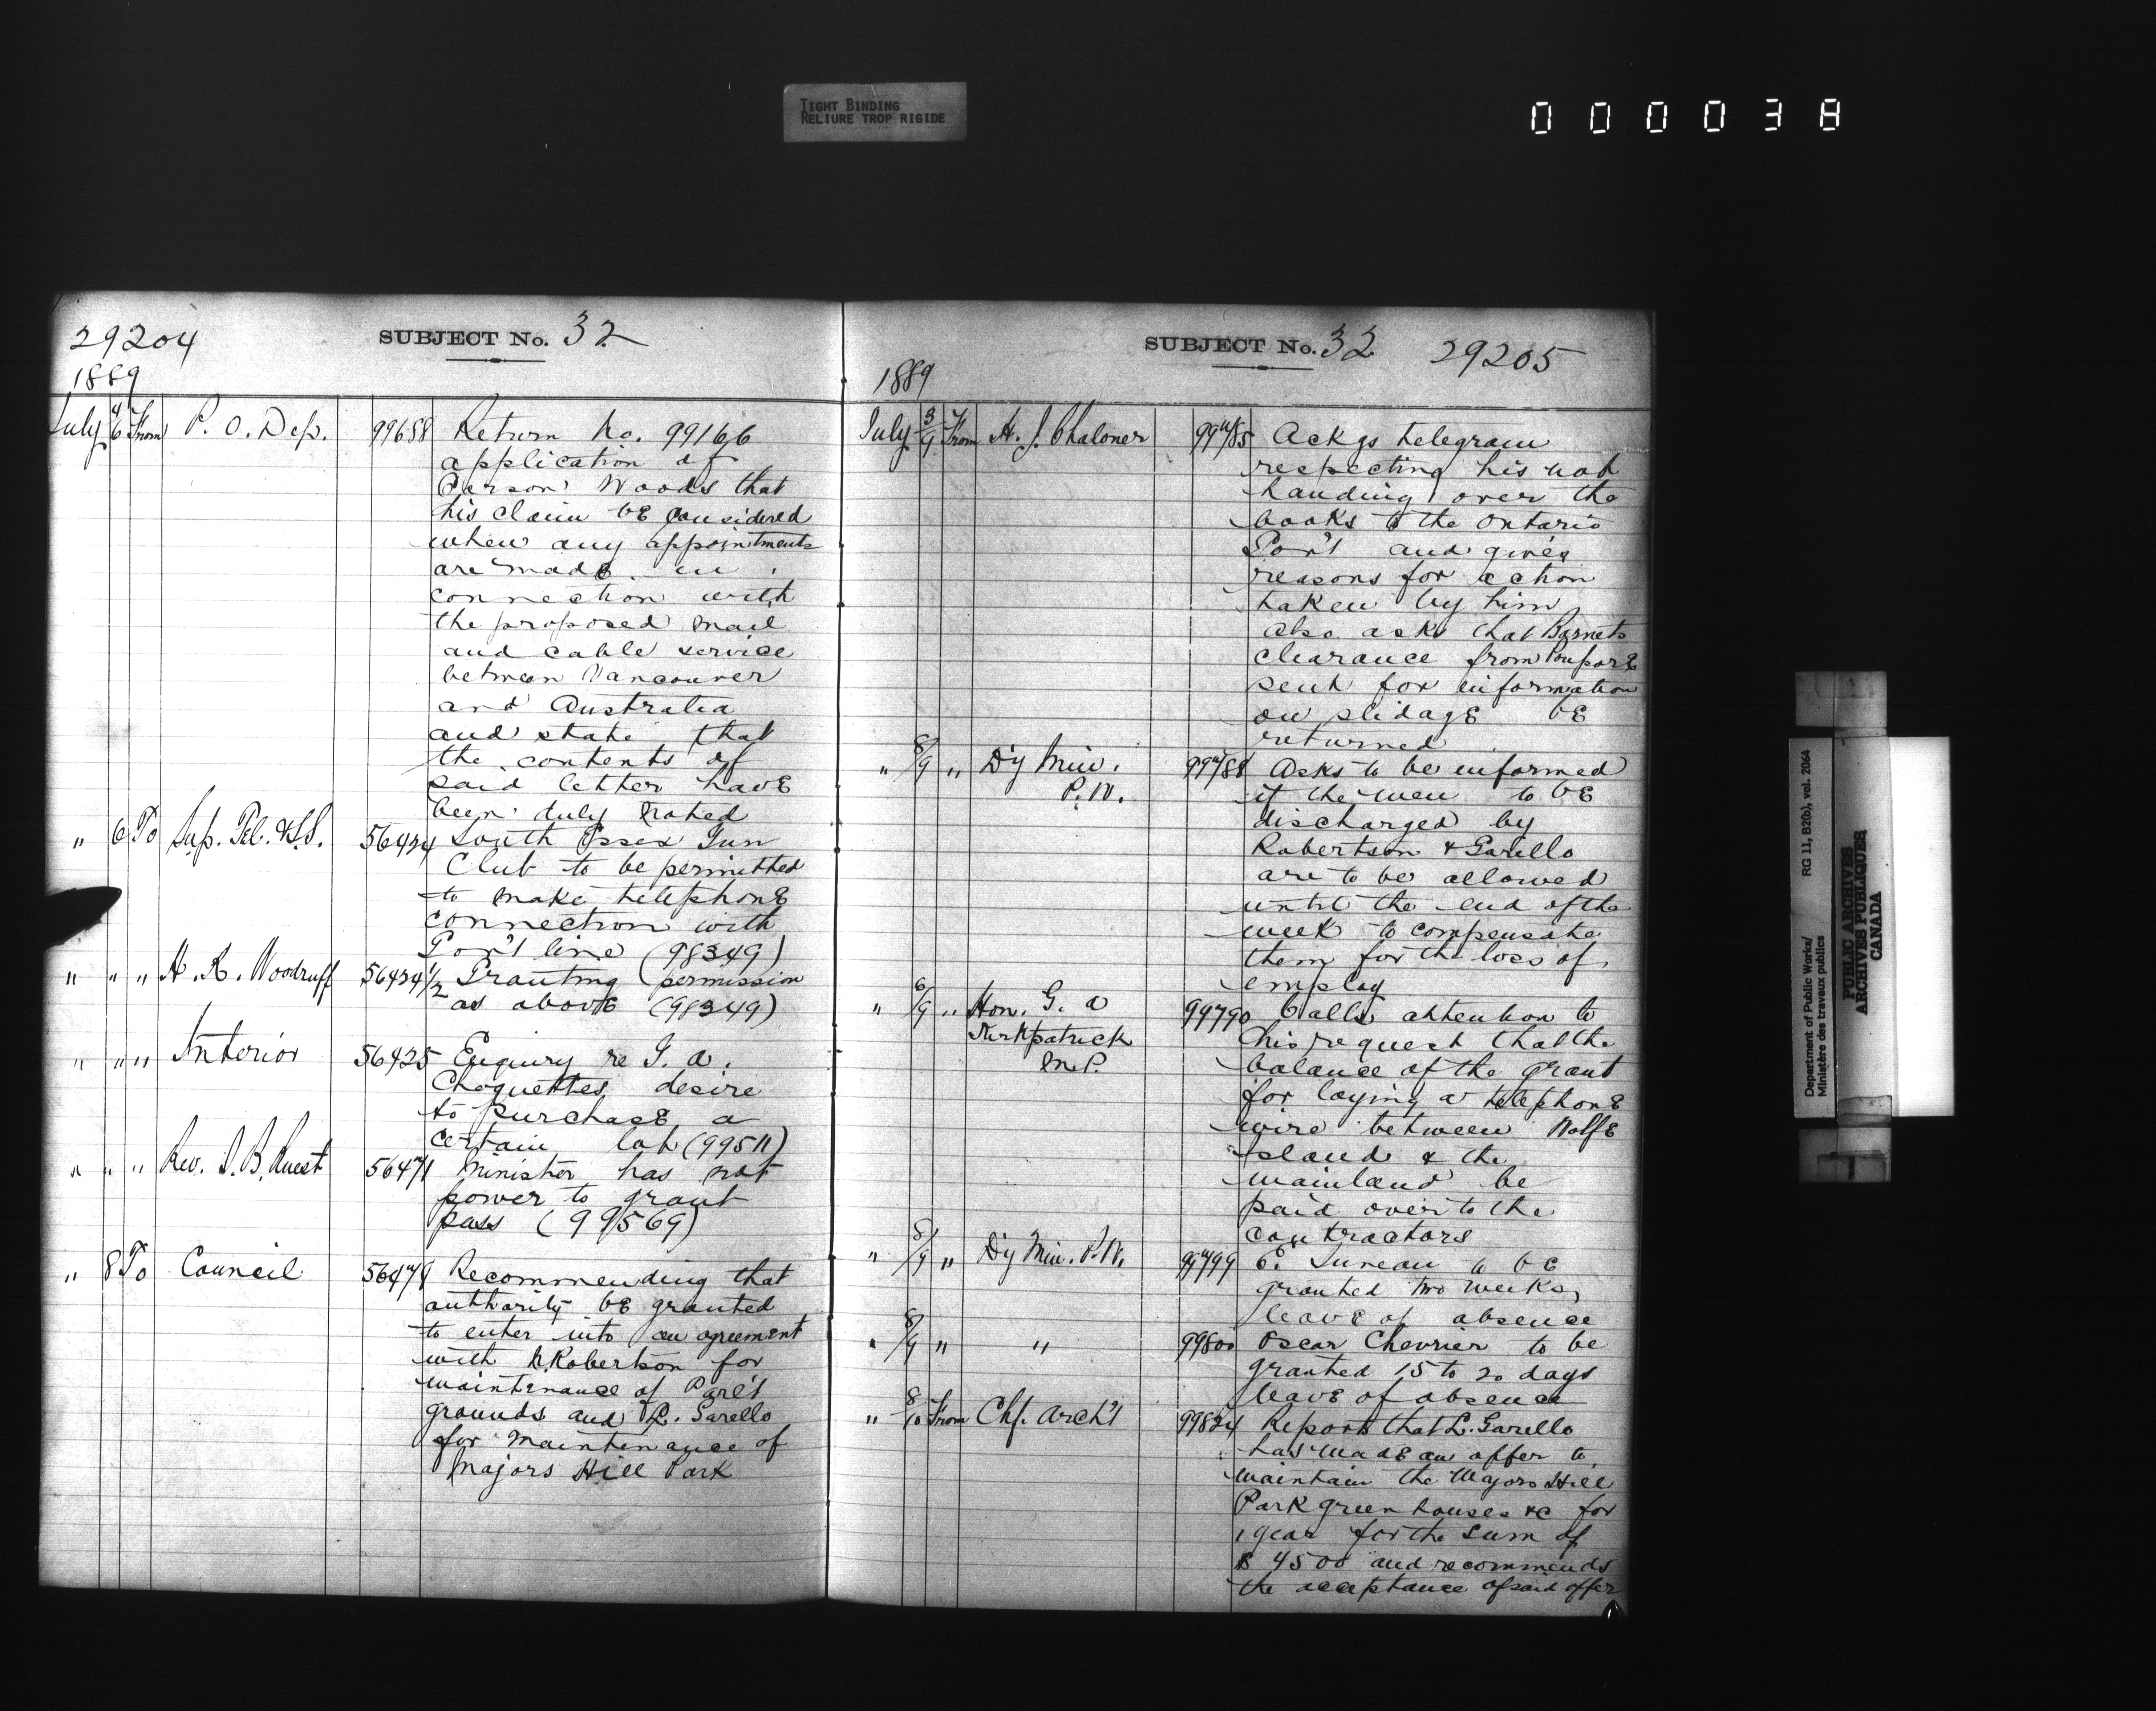 TIGHT BINDING
RELIURE TROP RIGIDE
000038
29204
SUBJECT No. 32
1889
July 4/6 From P. O. Dep. 99688 Return No. 99166
application of
Parson Woods that
his claim be considered
when any appointments
are made in
connection with
the proposed mail
and cable service
between Vancouver
and Australia
and state that
the contents of
said letter have
been duly noted
" 6 To Sup. Tel. & S.S. 56424 South Essex Gun
Club to be permitted
to make telephone
connection with
Gov't line (98349)
" " " H. R. Woodruff 56424 1/2 Granting permission
as above (98349)
" " " Interior 56425 Enquiry re G. A.
Choquettes desire
to purchase a
certain lot (99511)
" " " Rev. J. B. 56471 Minister has not
power to grant
pass (99569)
" 8 To Council 56479 Recommending that
authority be granted
to enter into an agreement
with N. Robertson for
maintenance of Parl't
grounds and L. Garello
for maintenance of
Majors Hill Park
SUBJECT No. 32 29205
1889
July 3/9 From H. J. Chaloner 99785 Ackgs telegram
respecting his not
handing over the
books to the Ontario
Gov't and gives
reasons for action
taken by him
also asks that Barnets
clearance from Poupore
sent for information
on slidage be
returned
" 8/9 " D'y Min. 99788 Asks to be informed
P. W. if the men to be
discharged by
Robertson & Garello
are to be allowed
until the end of the
week to compensate
them for the loss of
employ
" 6/9 " Hon. G. A 99790 Calls attention to
Kirkpatrick his request that the
M.P. balance of the grant
for laying a telephone
wire between Wolfe
Island & the
mainland be
paid over to the
contractors
" 8/9 " D'y Min. P.W. 99799 E. Juneau to be
granted two weeks
leave of absence
" 8/9 " " 99800 Oscar Chevrier to be
granted 15 to 20 days
leave of absence
" 8/10 From Chf. Arch't 99824 Reports that L. Garello
has made an offer to
maintain the Majors Hill
Park green houses &c for
1 year for the sum of
$ 4500 and recommends
the acceptance of said offer
Department of Public Works/
Ministère des travaux publics
RG 11, B2(b), vol. 2064
PUBLIC ARCHIVES
ARCHIVES PUBLIQUES
CANADA